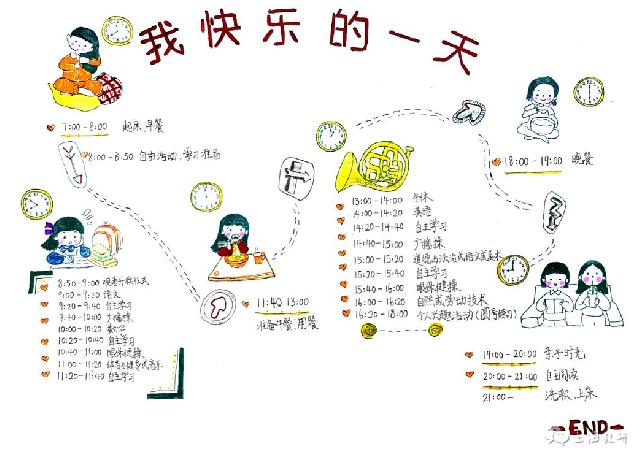 我快乐的一天
7:00-8:00 起床、早餐
8:00-8:50 自由活动、学习准备
8:50-9:00 观看升旗仪式
9:00-9:20 语文
9:20-9:40 自主学习
9:40-10:00 广播操
10:00-10:20 数学
10:20-10:40 自主学习
10:40-11:00 眼保健操
11:00-11:20
11:20-11:40 自主学习
11:40-13:00
准备午餐、用餐
13:00-14:00 午休
14:00-14:20 英语
14:20-14:40 自主学习
14:40-15:00 广播操
15:00-15:20 道德与法治或语文或美术
15:20-15:40 自主学习
15:40-16:00 眼保健操
16:00-16:20 自然或劳动技术
16:20-18:00 个人兴趣活动
18:00-19:00 晚餐
19:00-20:00 亲子时光
20:00-21:00 自主阅读
21:00- 洗漱、上床
-END-